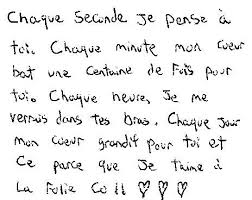 Chaque seconde je pense à
toi. Chaque minute mon cœur
bat une centaine de fois pour
toi. Chaque heure, je me
verrais dans tes bras. Chaque jour
mon cœur grandit pour toi et
ce parce que je t'aime à
La Folie Co ll ♡ ♡ ♡